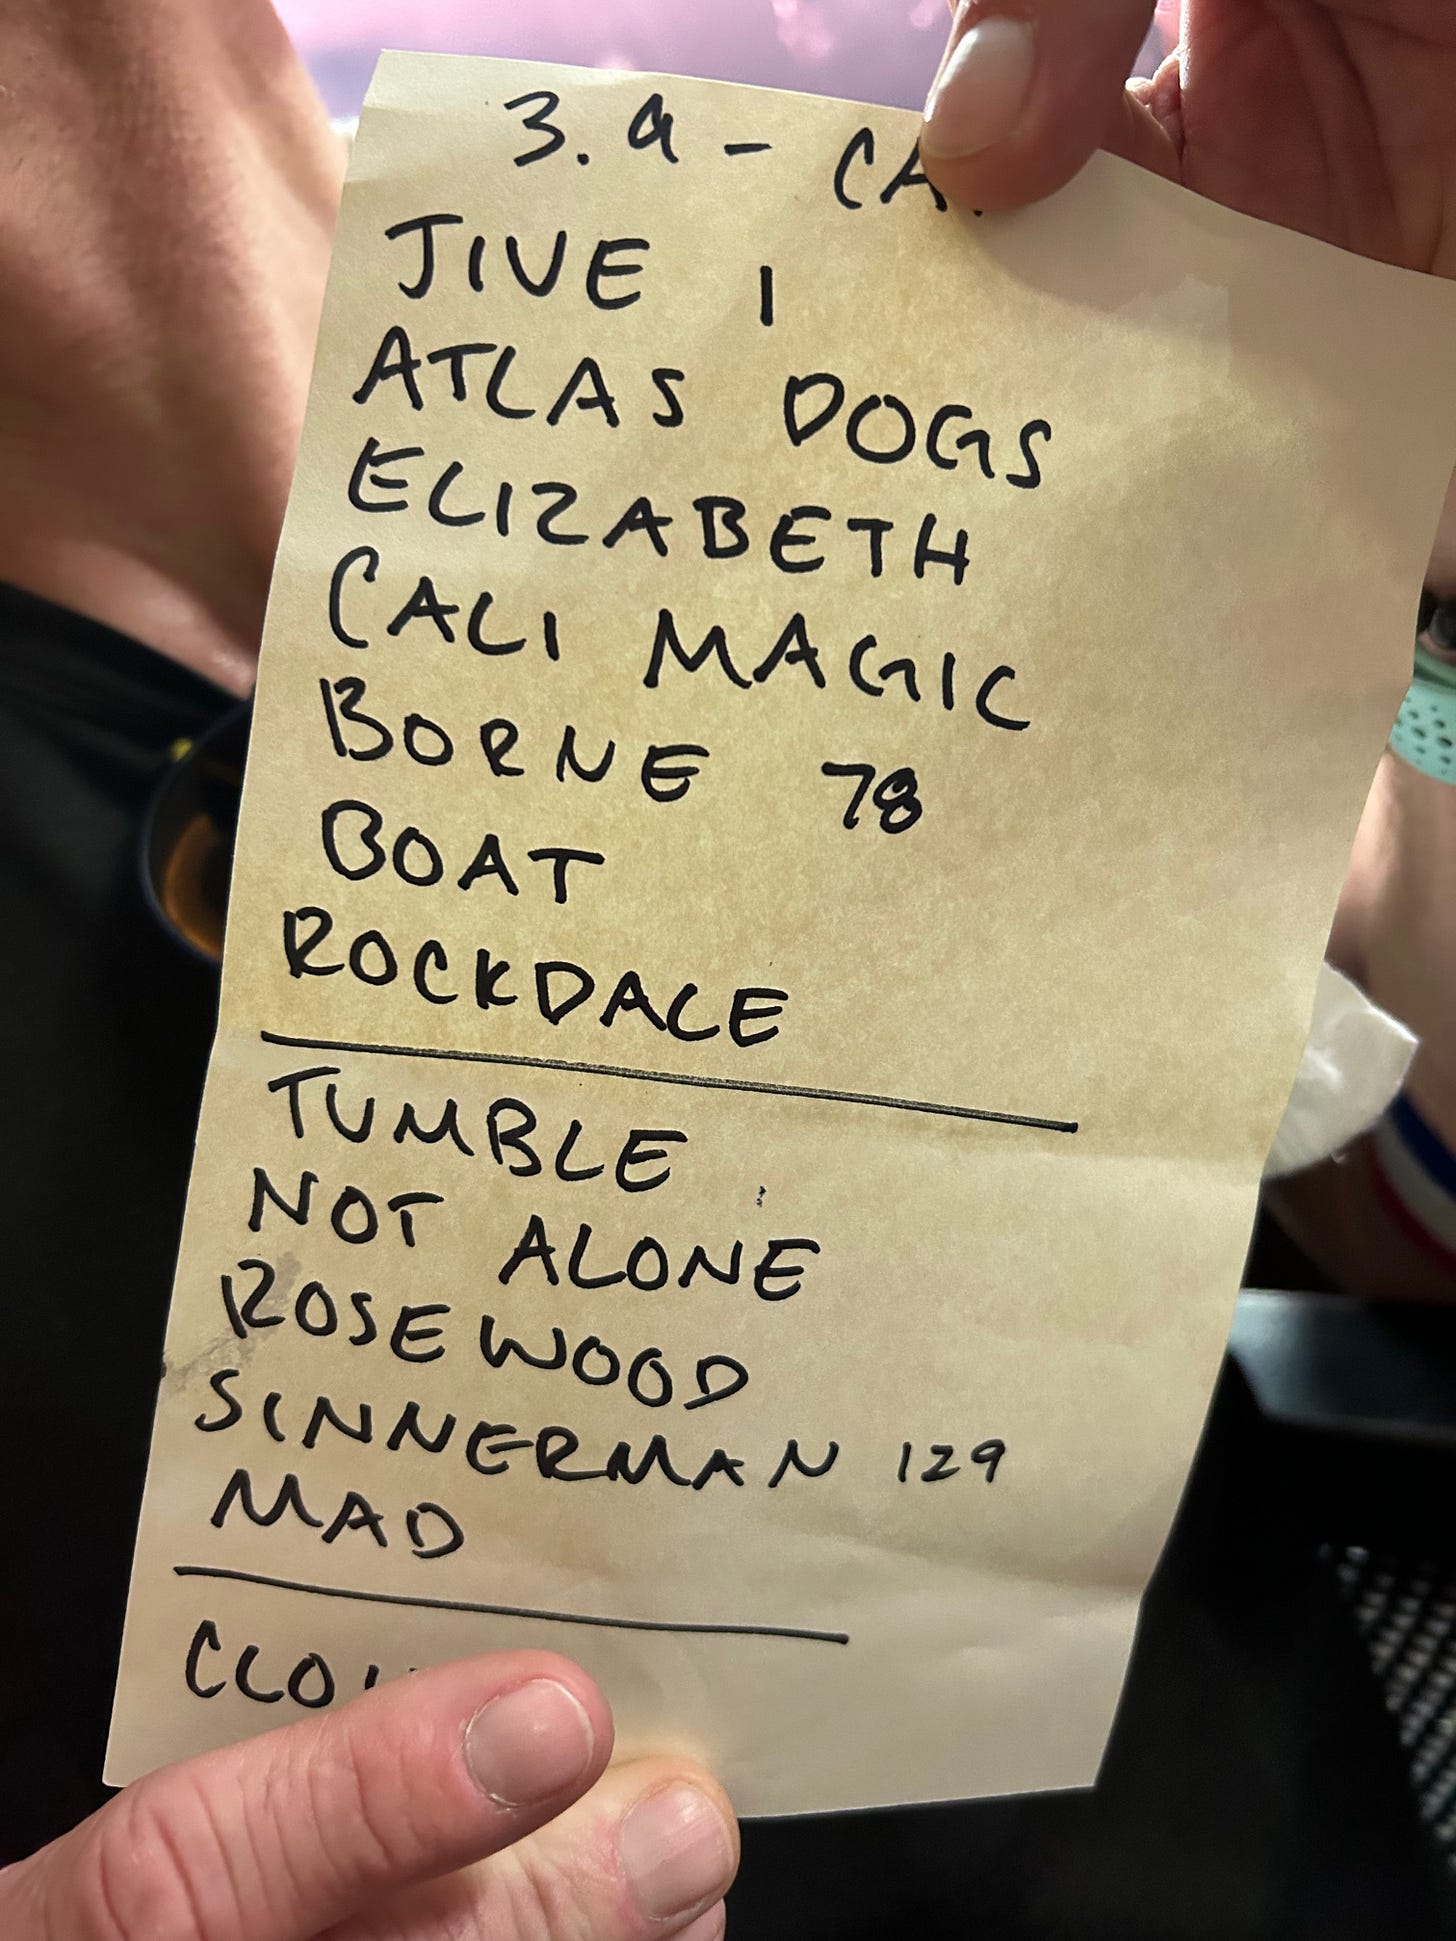 3.9 -
JIVE 1
ATLAS DOGS
ELIZABETH
CALI MAGIC
BORNE 78
BOAT
ROCKDALE
TUMBLE
NOT ALONE
ROSEWOOD
SINNERMAN 129
MAD